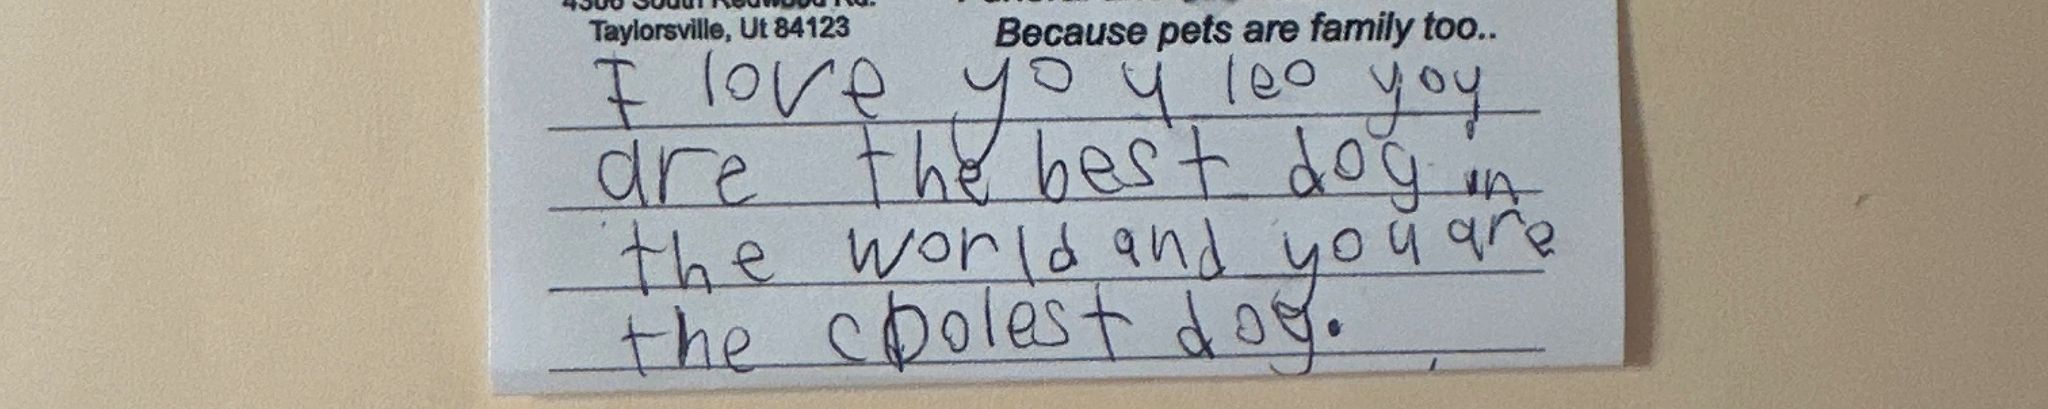 Taylorsville, Ut 84123
Because pets are family too..
I love you leo you
are the best dog in
the world and you are
the coolest dog.